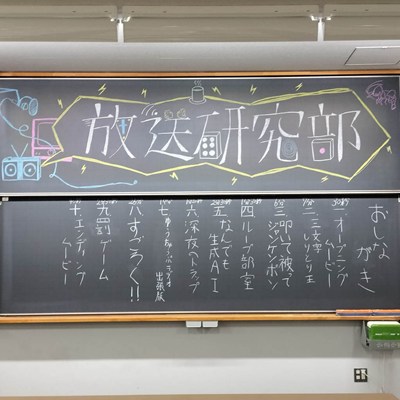 放送研究部
おしながき
一 オープニングムービー
二 三文字しりとり王
三 叩いて被ってジャンケンポン
四 ループ部室
五 なんでも生成AI
六 深夜のトラップ
七 出張版
八 すごろく!!
九 罰ゲーム
十 エンディングムービー